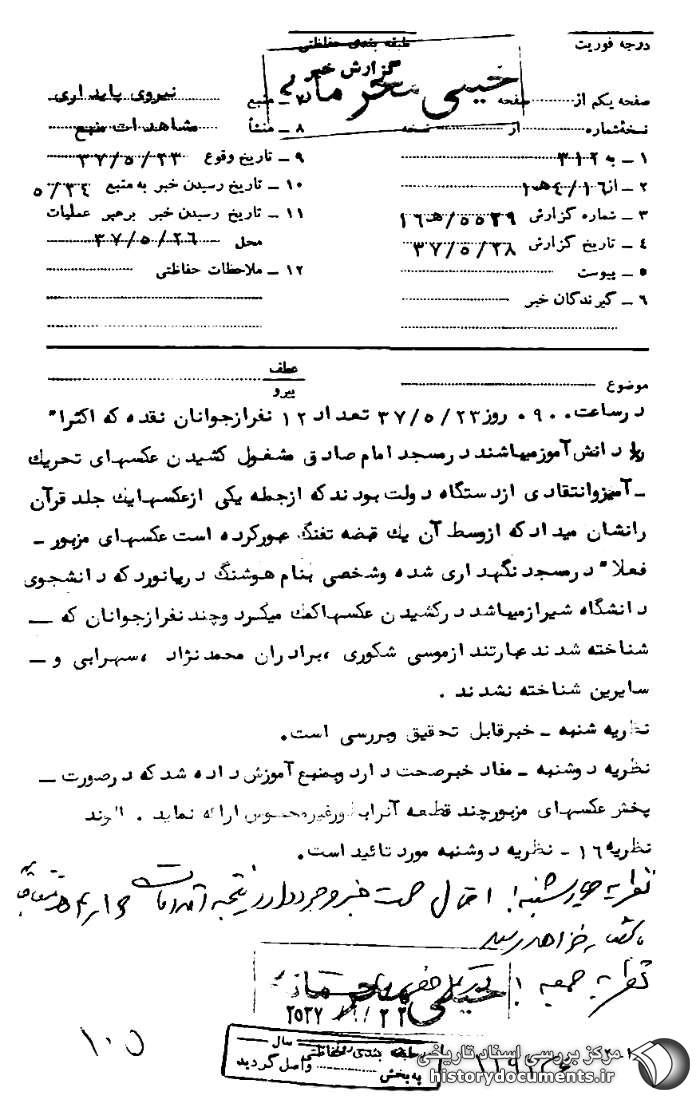 درجه فوریت
طبقه بندی حفاظتی
گزارش خبر
خیلی محرمانه
صفحه یکم از صفحه
نسخه شماره از نسخه
۱ ــ به ۳۱۲
۲ ــ از ۱۶/ه‍ ۱
۳ ــ شماره گزارش ۵۵۲۹/ه‍ ۱۶
۴ ــ تاریخ گزارش ۳۷/۵/۲۸
۵ ــ پیوست
۶ ــ گیرندگان خبر
۷ ــ منبع نیروی پایداری
۸ ــ منشأ مشاهدات منبع
۹ ــ تاریخ وقوع ۳۷/۵/۲۳
۱۰ ــ تاریخ رسیدن خبر به منبع ۵/۲۴
۱۱ ــ تاریخ رسیدن خبر برهبر عملیات
محل ۳۷/۵/۲۶
۱۲ ــ ملاحظات حفاظتی
موضوع
عطف
پیرو
درساعت ۰۹۰۰ روز ۳۷/۵/۲۳ تعداد ۱۲ نفرازجوانان نقده که اکثرا"
دانش آموزمیباشند درمسجد امام صادق مشغول کشیدن عکسهای تحریک
ـ آمیزوانتقادی ازدستگاه دولت بودندکه ازجمله یکی ازعکسهایک جلد قرآن
رانشان میدادکه ازوسط آن یک قبضه تفنگ عبورکرده است عکسهای مزبور ـ
فعلا" درمسجدنگهداری شده وشخصی بنام هوشنگ دریانوردکه دانشجوی
دانشگاه شیرازمیباشد درکشیدن عکسهاکمک میکرد وچند نفرازجوانان که ــ
شناخته شدند عبارتند ازموسی شکوری ،برادران محمدنژاد ،سهرابی و ــ
سایرین شناخته نشدند .
نظریه شنبه ــ خبرقابل تحقیق وبررسی است.
نظریه دوشنبه ــ مفاد خبرصحت دارد وبمنبع آموزش داده شدکه درصورت ــ
پخش عکسهای مزبورچند قطعه آنرابطورغیرمحسوس ارائه نماید . الوند
نظریه ۱۶ ــ نظریه دوشنبه مورد تائید است.
نظریه چهارشنبه: احتمال صحت خبر وجود دارد نتیجه اقدامات
خواهد رسید
نظریه جمعه :
خیلی محرمانه
۲۵۳۷
۱۰۵
طبقه بندی حفاظتی
سال
به بخش واصل گردید
مرکز بررسی اسناد تاریخی
historydocuments.ir